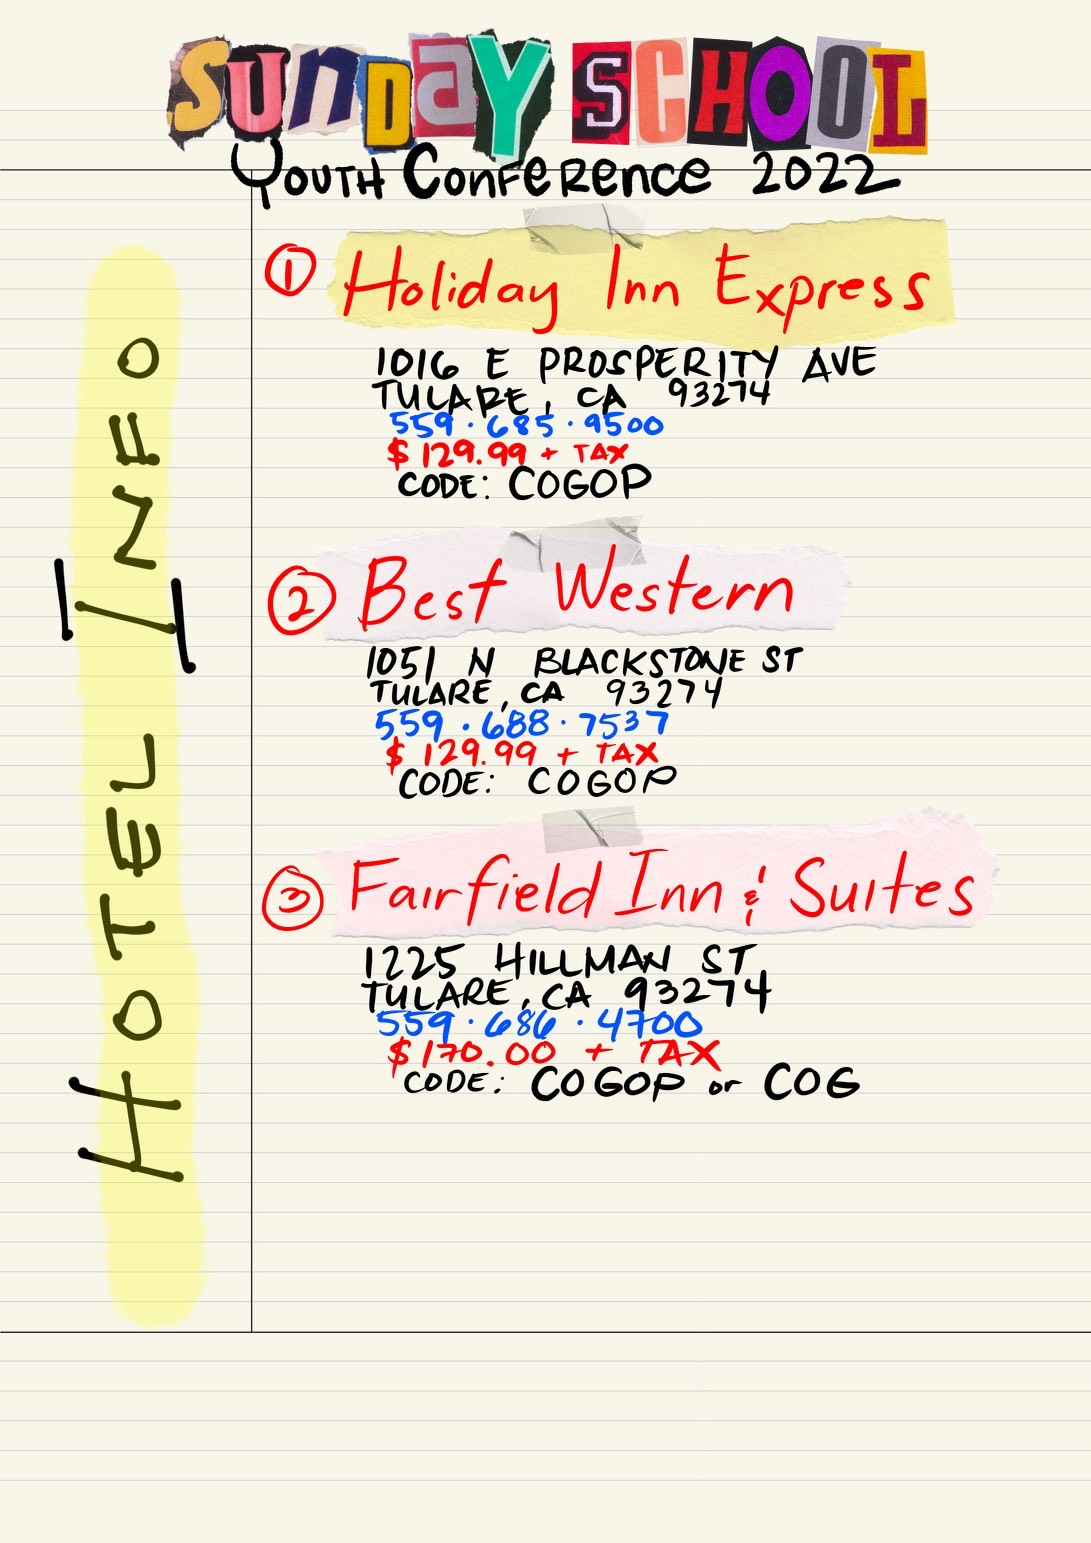 SUNDAY SCHOOL
YOUTH CONFERENCE 2022
HOTEL INFO
1 Holiday Inn Express
1016 E PROSPERITY AVE
TULARE, CA 93274
559·685·9500
$129.99 + TAX
CODE: COGOP
2 Best Western
1051 N BLACKSTONE ST
TULARE, CA 93274
559·688·7537
$129.99 + TAX
CODE: COGOP
3 Fairfield Inn & Suites
1225 HILLMAN ST
TULARE, CA 93274
559·686·4700
$170.00 + TAX
CODE: COGOP or COG